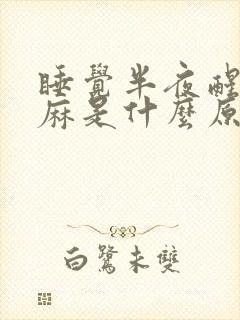 睡覺半夜醒
麻是什麼原
白鷺未雙